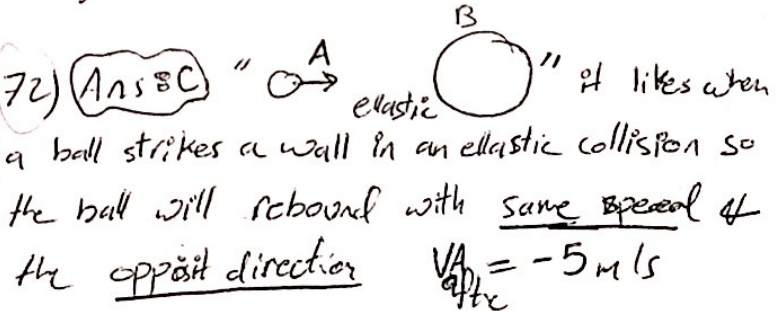 B
72) Ans: C " A " it likes when
ellastic
a ball strikes a wall in an ellastic collision so
the ball will rebound with same speed &
the oppösit direction VA after = -5 m/s